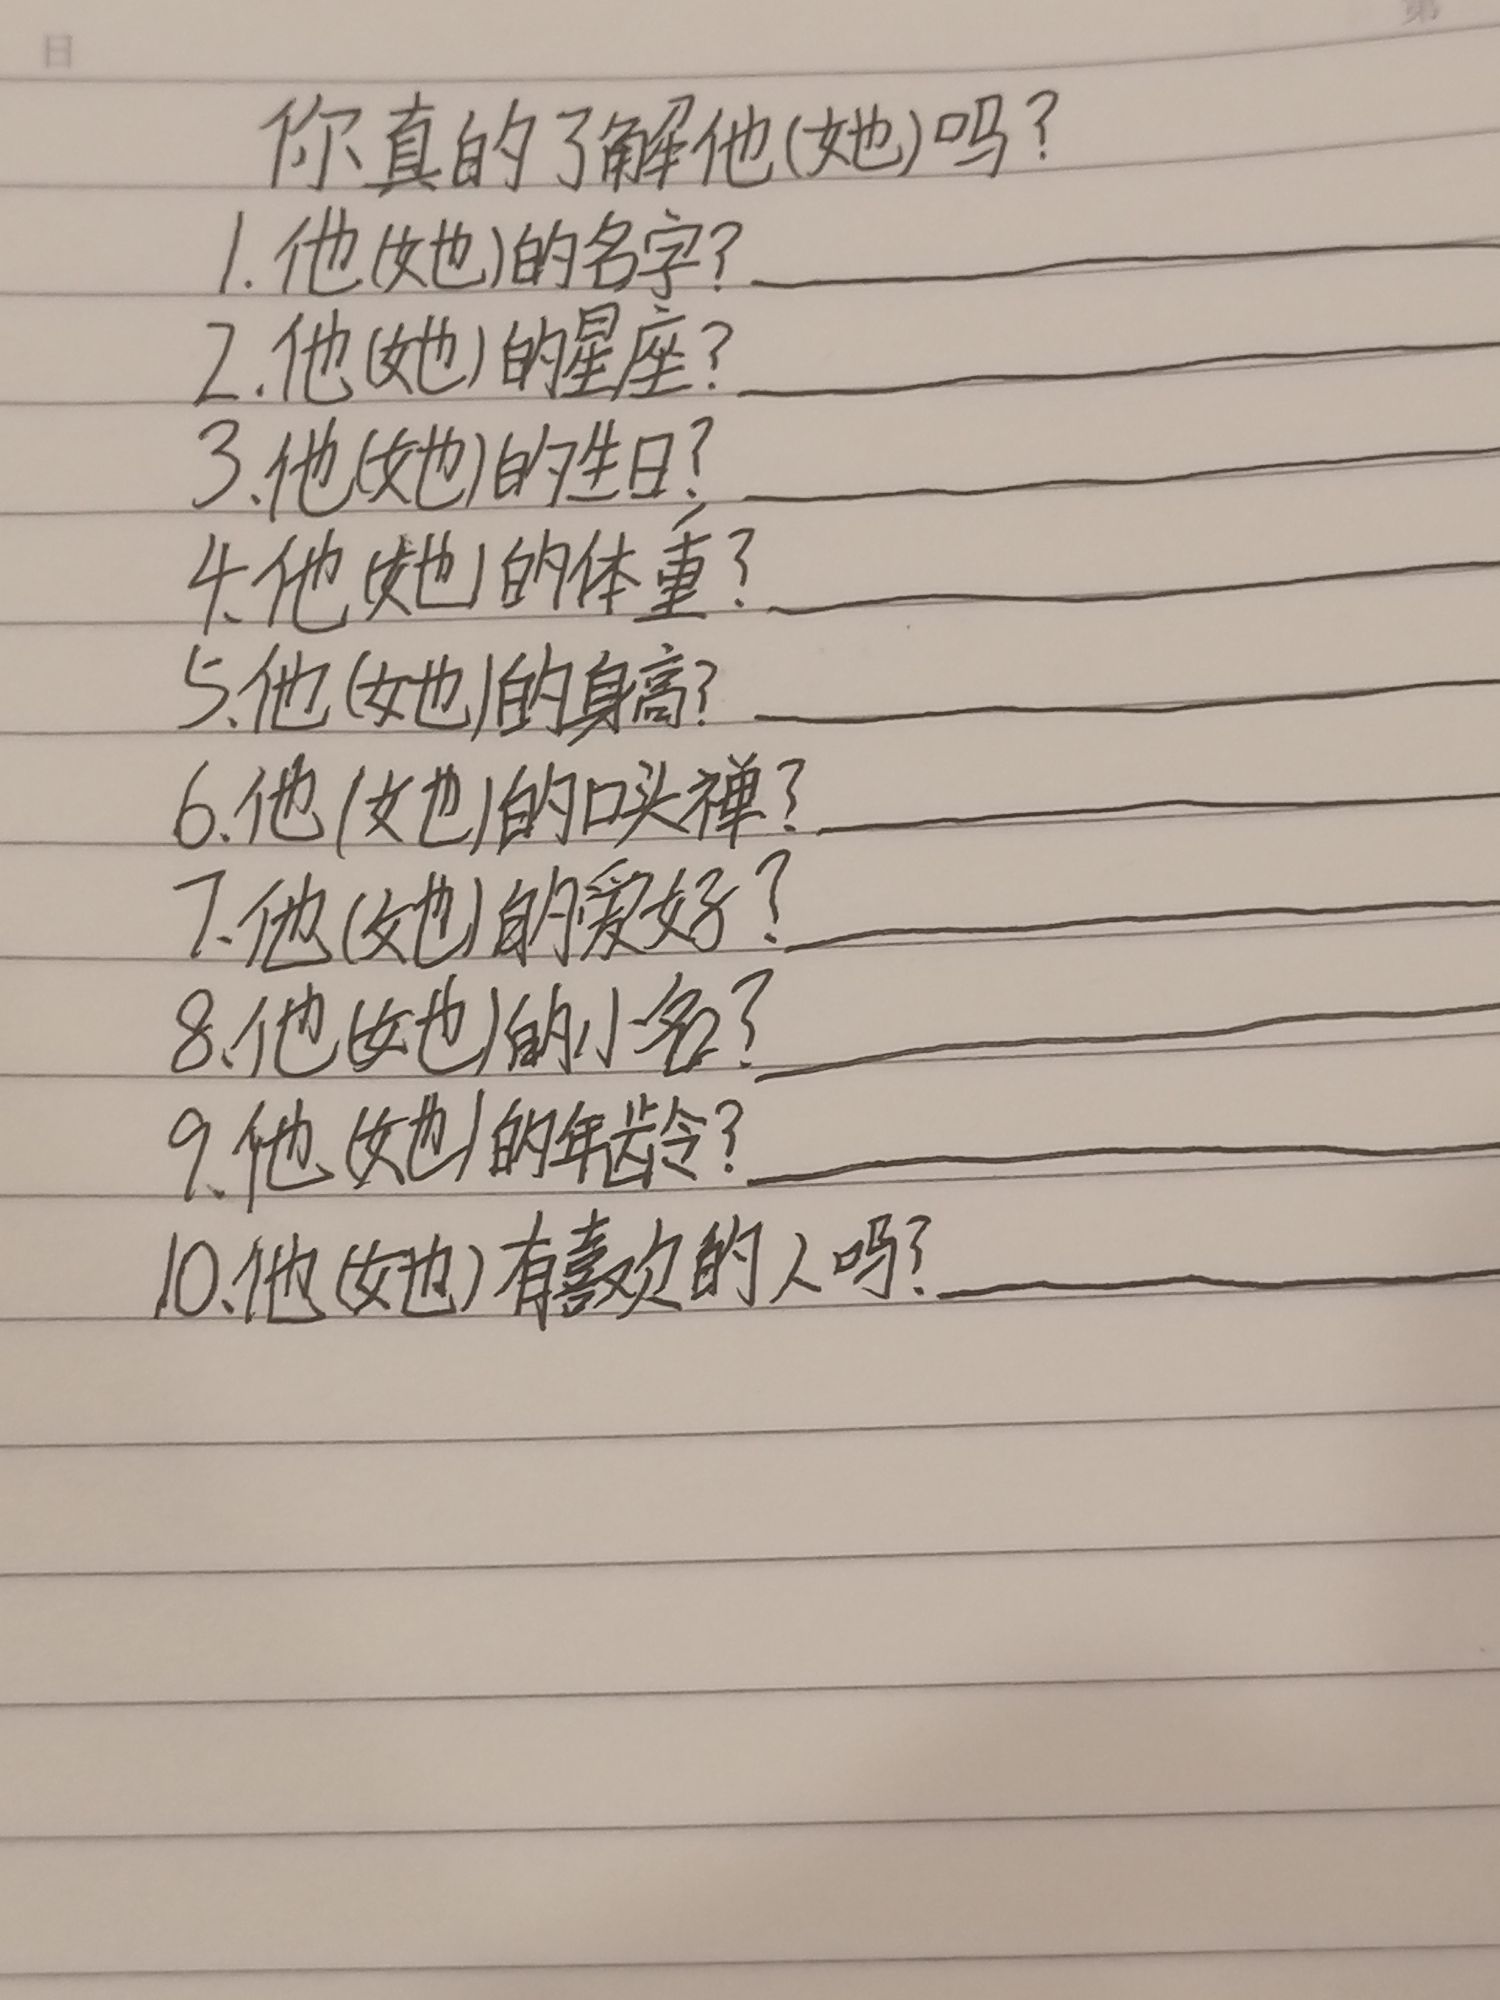 日 第
你真的了解他(她)吗?
1.他(她)的名字?
2.他(她)的星座?
3.他(她)的生日?
4.他(她)的体重?
5.他(她)的身高?
6.他(她)的口头禅?
7.他(她)的爱好?
8.他(她)的小名?
9.他(她)的年龄?
10.他(她)有喜欢的人吗?